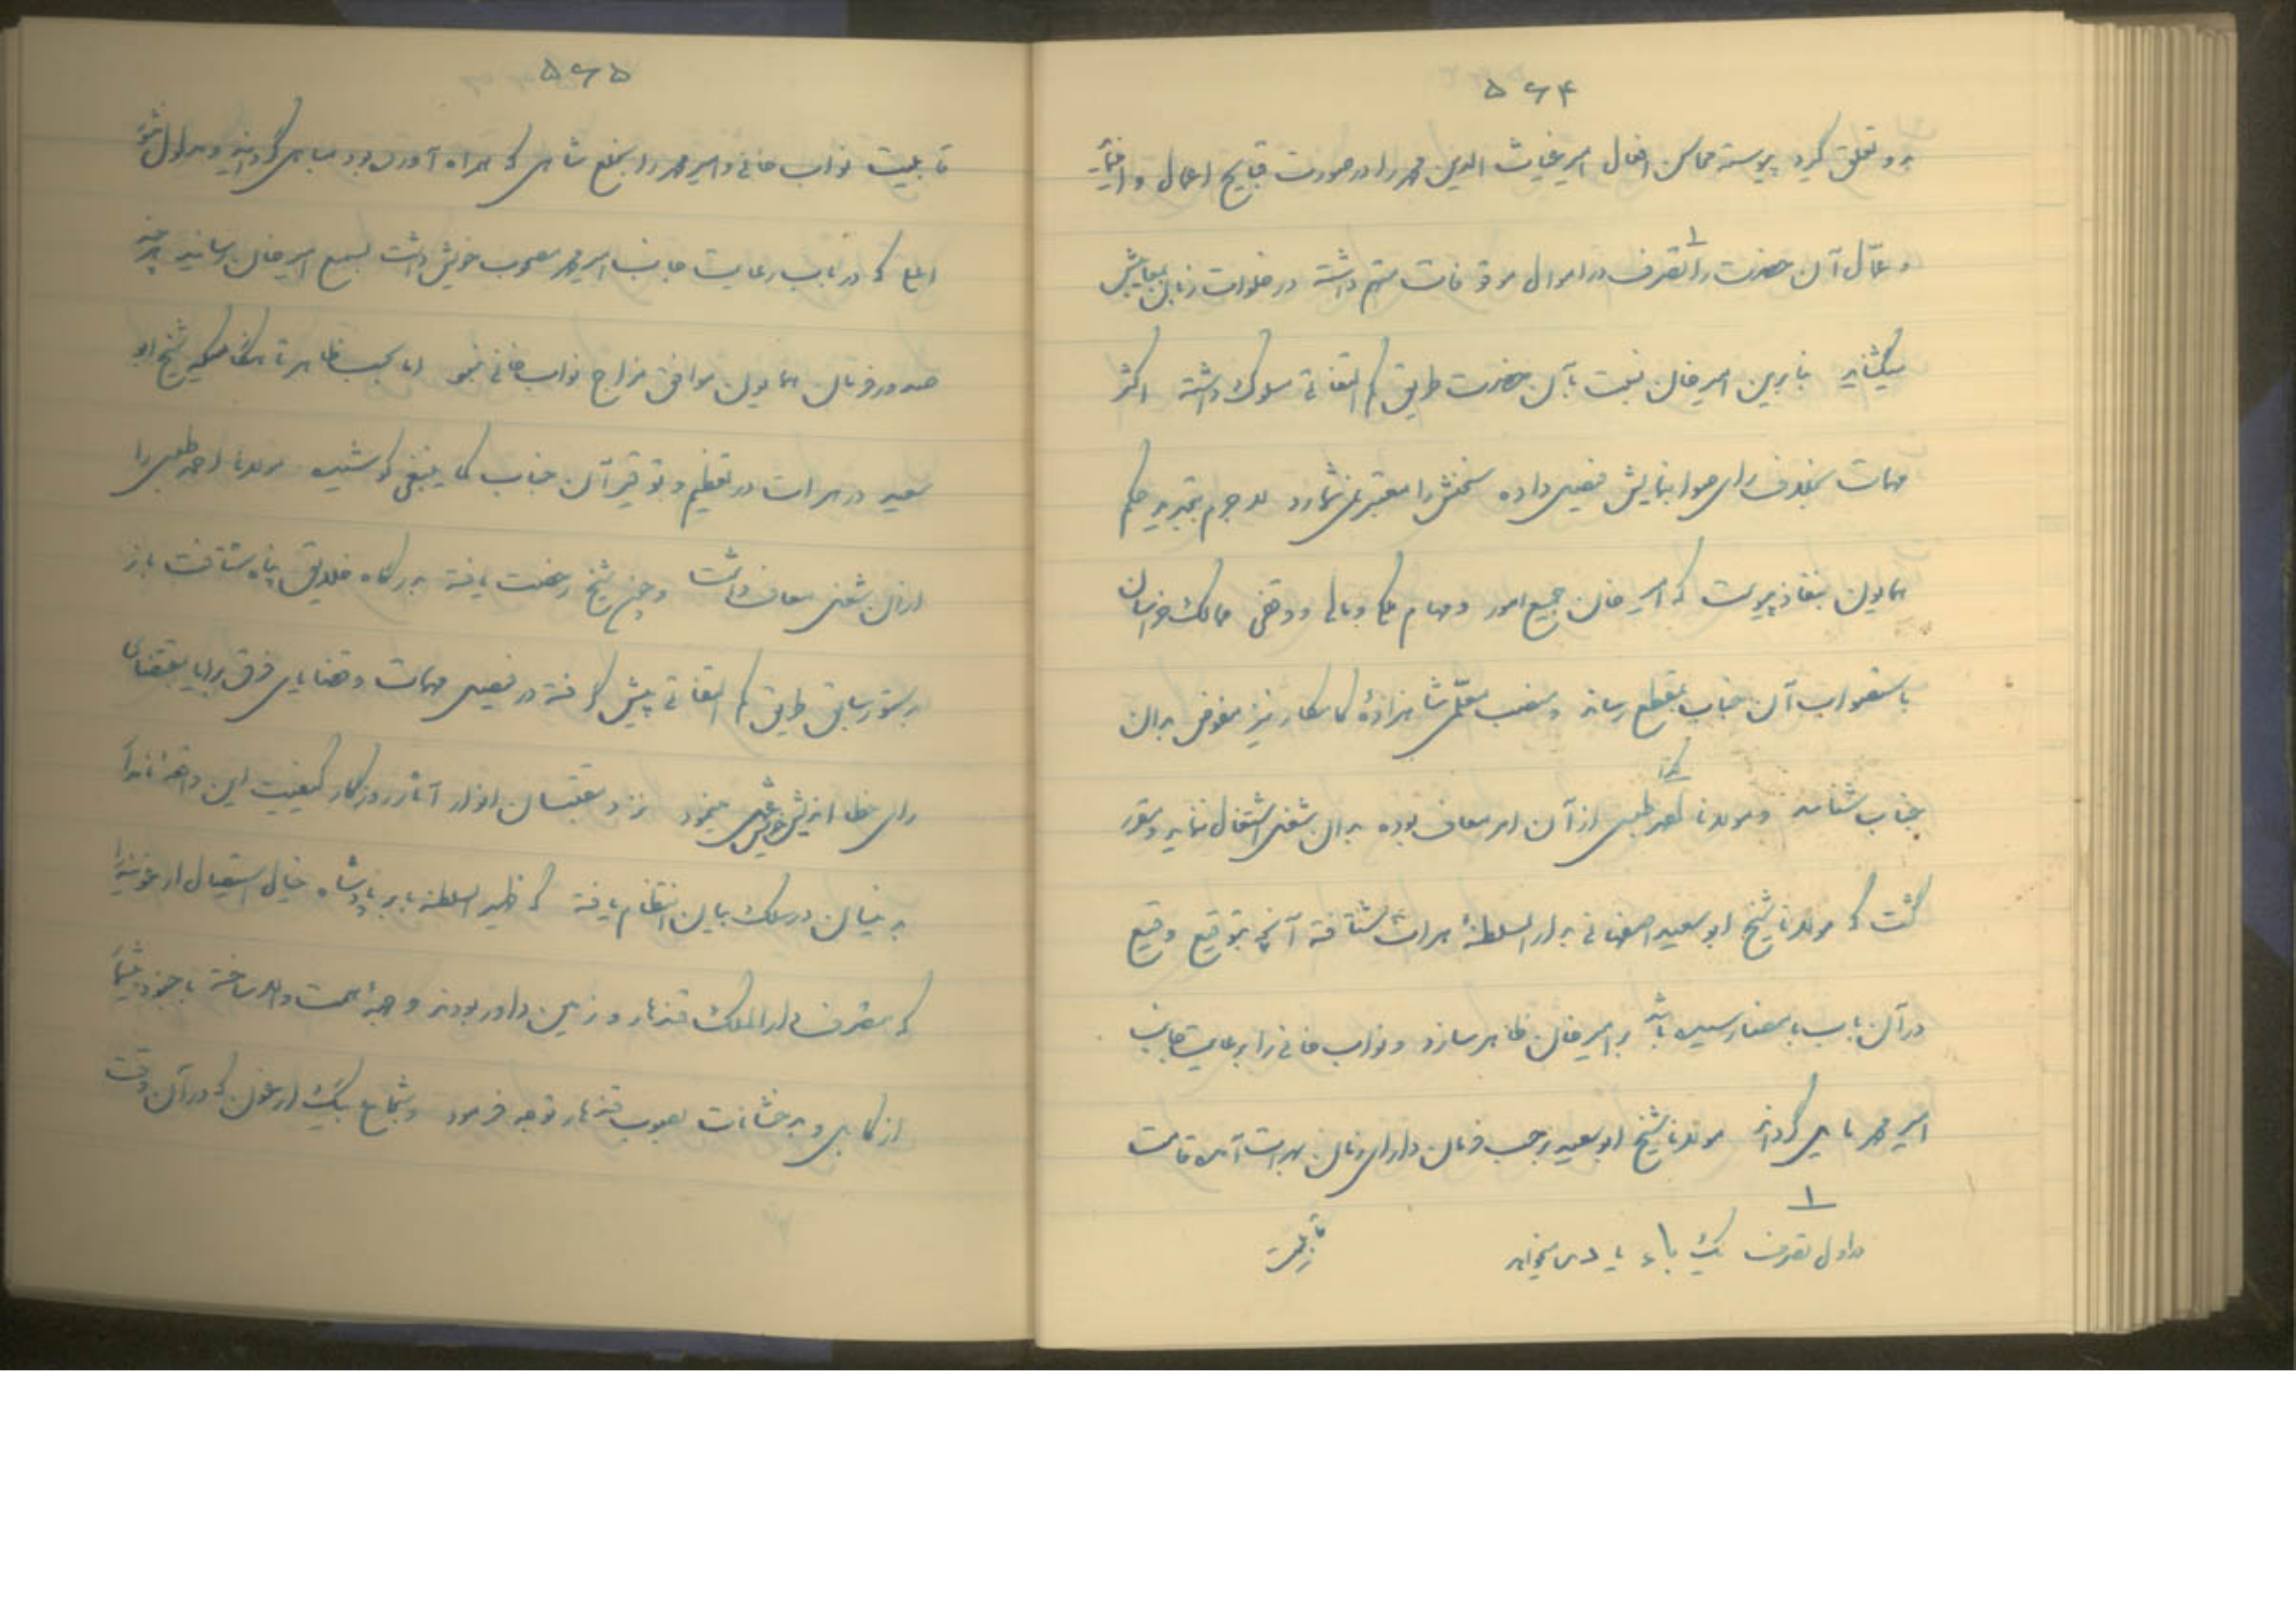 ۵۶۴
بدو تعلق گیرد پیوسته محاسن افعال امیر غیاث الدین محمد را در صورت قبایح اعمال وا
و عمّال آن حضرت را بتصرف در اموال موقوفات متهم داشته در خلوات زبان
میگشاید بنابرین امیر خان نسبت بآن حضرت طریق کم التفاتی سلوک داشته اکثر
مهمات بخلاف رای صواب نمایش فیصل داده سخنش را معتبر نمی شمارد لاجرم بتجدید حکم
همایون بنفاذ پیوست که امیر خان جمیع امور و مهام ملکی و مالی و وقفی ممالک خراسان
باستصواب آن جناب بمقطع رساند و منصب معلّمی شاهزادهٔ کامکار نیز مفوض بدان
جناب شناسد و مولانا احمد طبسی از آن امر معاف بوده بدان شغل اشتغال ننماید و مقرر
کذا
گشت که مولانا شیخ ابو سعید اصفهانی بدار السلطنهٔ هرات شتافته آنچه بتوقیع وقیع
در آن باب بامضا رسیده باشد بر امیر خان ظاهر سازد و نواب خانی را برعایت جانب
امیر محمد مایل گرداند مولانا شیخ ابو سعید برحسب فرمان دارای زمان بهرات آمده قامت
۱
در اول تصرف یک باء یا دمی میخواهد
قابلیت
۵۶۵
قابلیت نواب خانی و امیر محمد را بخلع شاهی که همراه آورده بود مباهی گردانید و مدلول
که در باب رعایت جانب امیر محمد مصحوب خویش داشت بسمع امیر خان رسانید هر چند
صدور فرمان همایون موافق مزاج نواب خانی نبود اما بحسب ظاهر تا هنگامیکه شیخ ابو
سعید در هرات در تعظیم و توقیر آن جناب کما ینبغی کوشیده مولانا احمد طبسی را
از آن شغل معاف داشت و چون شیخ رخصت یافته بدرگاه خلایق پناه شتافت باز
بدستور سابق طریق کم التفاتی پیش گرفته در فیصل مهمات و قضایای فرق برایا بمقتضای
رای خطا اندیش خویش عمل مینمود نزد مقتبسان انوار آثار روزگار کیفیت این واقعه
بر بنیان در سلک بیان انتظام یافته که ظهیر السلطنه بابر پادشاه خیال استیصال ارغونیه را
که متصرف دار الملک قندهار و زمین داور بودند وجهه همت والا ساخته با جنود
از کابل و بدخشانات بصوب قندهار توجه فرمود و شجاع بیک ارغون که در آن وقت